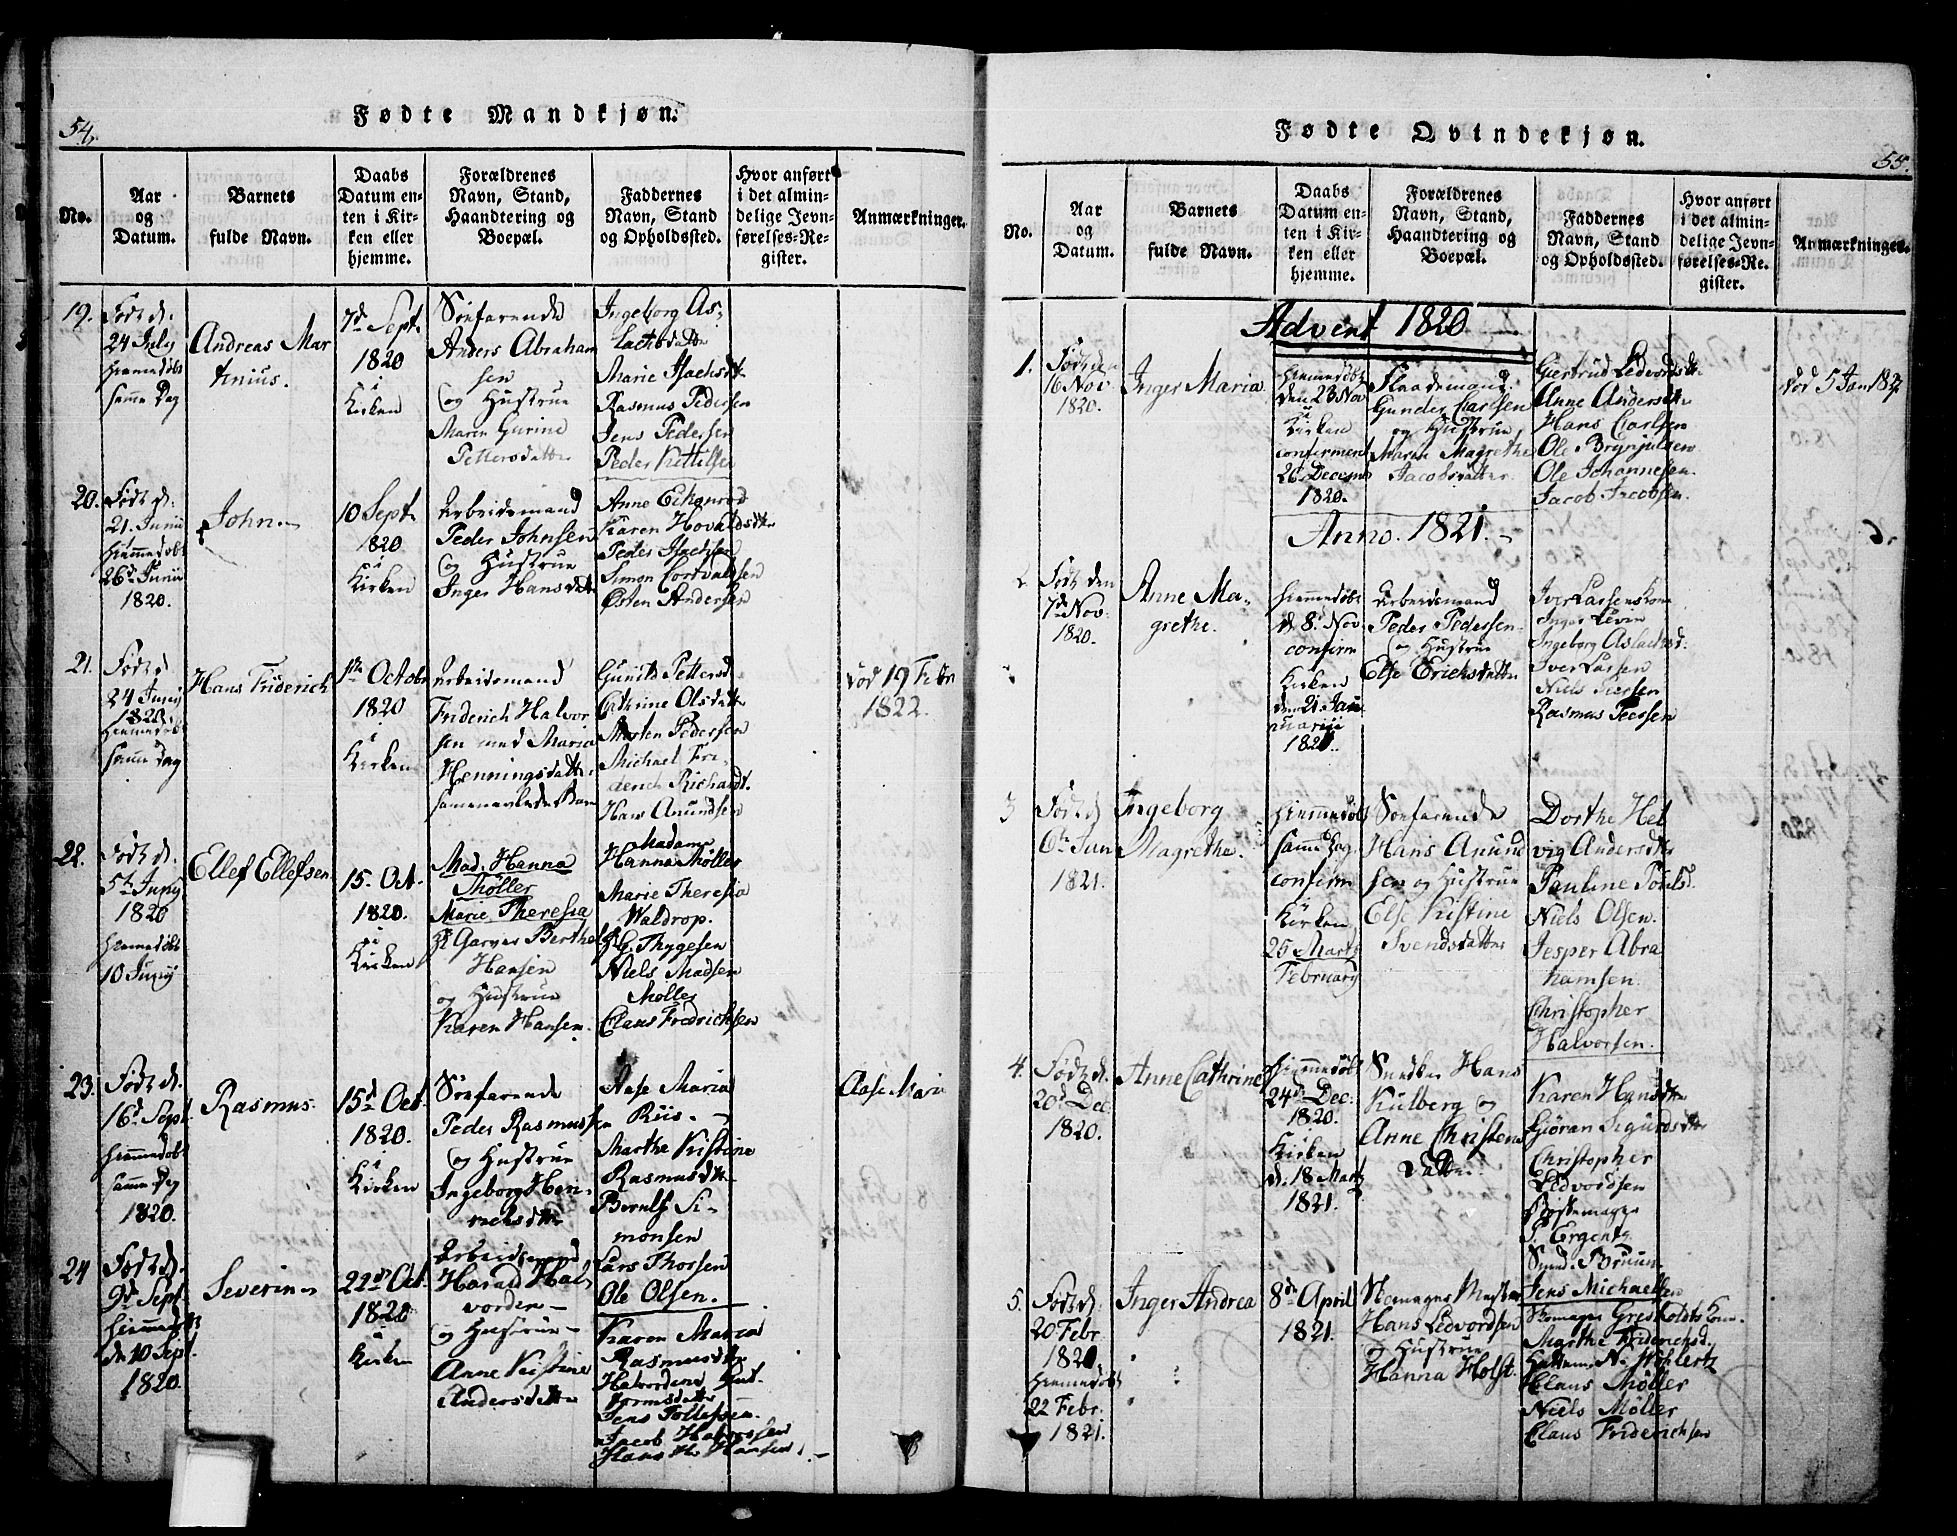 54.
Fødte Mandkjøn.
No.
Aar
og
Datum.
Barnets
fulde Navn.
Daabs
Datum en-
ten i Kir-
ken eller
hjemme.
Forældrenes
Navn, Stand,
Haandtering og
Boepæl.
Faddernes
Navn, Stand
og Opholdssted.
Hvor anført
i det almin-
delige Jevn-
førelses-Re-
gister.
Anmærkninger.
19.
Født d.
24 July
hiemmedøbt
samme Dag
Andreas Mar
tinius.
7d Sept.
1820
i
Kirken
Søefarende
Anders Abraham
sen
og Hustrue
Maren Gurine
Pettersdatter
Ingeborg As-
lachsdatter
Marie Isachsdtr
Rasmus Pedersen
Jens Pedersen
Peder Kettilsen
20.
Født d.
21. Junii
hiemmedøbt
26d Junii
1820.
John
10 Sept.
1820
i
Kirken
Arbeidsmand
Peder Johnsen
og Hustrue
Inger Hansdatter
Anne
Karen Hovaldsdtr
Peder Isachsen
Simon
Østen Andersen
21.
Født d
24 Junij
1820.
hiemmedøbt
samme Dag
Hans Friderich
1ste Octobr
1820
i
Kirken
Arbeidsmand
Friderich Halvor
sen med Maria
Henningsdatter
Gunild Petters
Cathrine Olsdatter
Morten Pedersen
Michael Fri-
derich Richardt.
Hans Anundsen
død 19 Febr
1822.
22.
Født d.
5te Junij
1820
hiemmedøbt
10 Junij
Ellef Ellefsen
15. Oct.
1820.
i
Kirken
Mad. Hanna
Møller
Marie Theresia
Garver Berthel
Hansen
og Hustrue
Karen Hansen.
Madame
Hanna Møller
Marie Theresia
Waldrop.
Thygesen
Niels Madsen
Møller
Claus Fredrichsen
23.
Født d.
16d Sept
hiemmedøbt
samme Dag
1820.
Rasmus.
15d Oct.
1820.
i
Kirken
Søefarende
Peder Rasmus
sen
og Hustrue
Ingeborg Hen-
richsdtr
Aase Maria
Riis
Marthe Kistine
Rasmusdtr
Bernt Si-
monsen
Lars Thorsen
Ole Olsen.
Aase Maria
24
Født d.
9d Sept.
hiemmedøbt
d 10 Sept.
1820.
Severin
22d Oct.
1820
Kirken
Arbeidsmand
Harald Hal-
vorsen
og Hustrue
Anne Kistine
Andersdatter
Karen Maria
Rasmusdtr
Jens Tollefsen.
Jacob Halvorsen
Hans Hansen.
Fødte Qvindekjøn.
55.
No.
Aar
og
Datum.
Barnets
fulde Navn.
Daabs
Datum en-
ten i Kir-
ken eller
hjemme.
Forældrenes
Navn, Stand,
Haandtering og
Boepæl.
Faddernes
Navn, Stand
og Opholdssted.
Hvor anført
i det almin-
delige Jevn-
førelses-Re-
gister.
Anmærkninger.
Advent 1820
1.
Født den
16 Nov
1820.
Inger Maria
hiemmedøbt
den 23 Nov
i
Kirken
confirmert
26 Decemb
1820.
Gunder Carlsen
og Hustrue
Maren Magrethe
Jacobsdatter
Giertrud Ledvordsdtr
Anne Andersdtr
Hans Carlsen
Ole Brynjulsen
Ole Johannesen
Jacob Jacobsen.
død 5 Jan
Anno. 1821.
2
Født den
7d Nov.
1820.
Anne Ma-
grethe.
hiemmedøbt
d 8. Nov.
confirm
Kirken
den 21. Jan
uarii
1821.
Arbeidsmand
Peder Pedersen
og Hustrue
Else Erichsdatter
Iver Larsens kone
Inger Levin
Ingeborg Aslachsd.
Iver Larsen
Niels Persen
Rasmus Peersen
3
Født d
6te Jan
1821.
Ingeborg
Magrethe.
hiemmedøbt
samme Dag
confirm
Kirken
25 Marts
February
Søefarende
Hans Anund
sen og Hustrue
Else Kistine
Svendsdatter
Dorthe Hel
vig Andersdtr
Pauline Poulsd.
Niels Olsen.
Jesper Abra
hamsen.
Christopher
Halvorsen.
4.
Født d.
20d Dec.
1820.
Anne Cathrine
hiemmedøbt
24d Dec.
1820.
Kirken
d. 18 Marts
1821.
Snedker Hans
Kulberg og
Anne Christens
datter
Karen Hansdtr
Gjöran Sigurdsdtr
Christopher
Ledvordsen
Børstemager
P. Ergents
Snedk. Bruun
Jens Michaelsen
5.
Født d.
20 Febr.
1821
hiemmedøbt
22 Febr.
1821.
Inger Andrea
8d April
1821.
Skomager Mester
Hans Ledvordsen
og Hustrue
Hanna Holst.
Marthe Friderichsd.
Claus Møller
Niels Møller
Claus Friderichsen